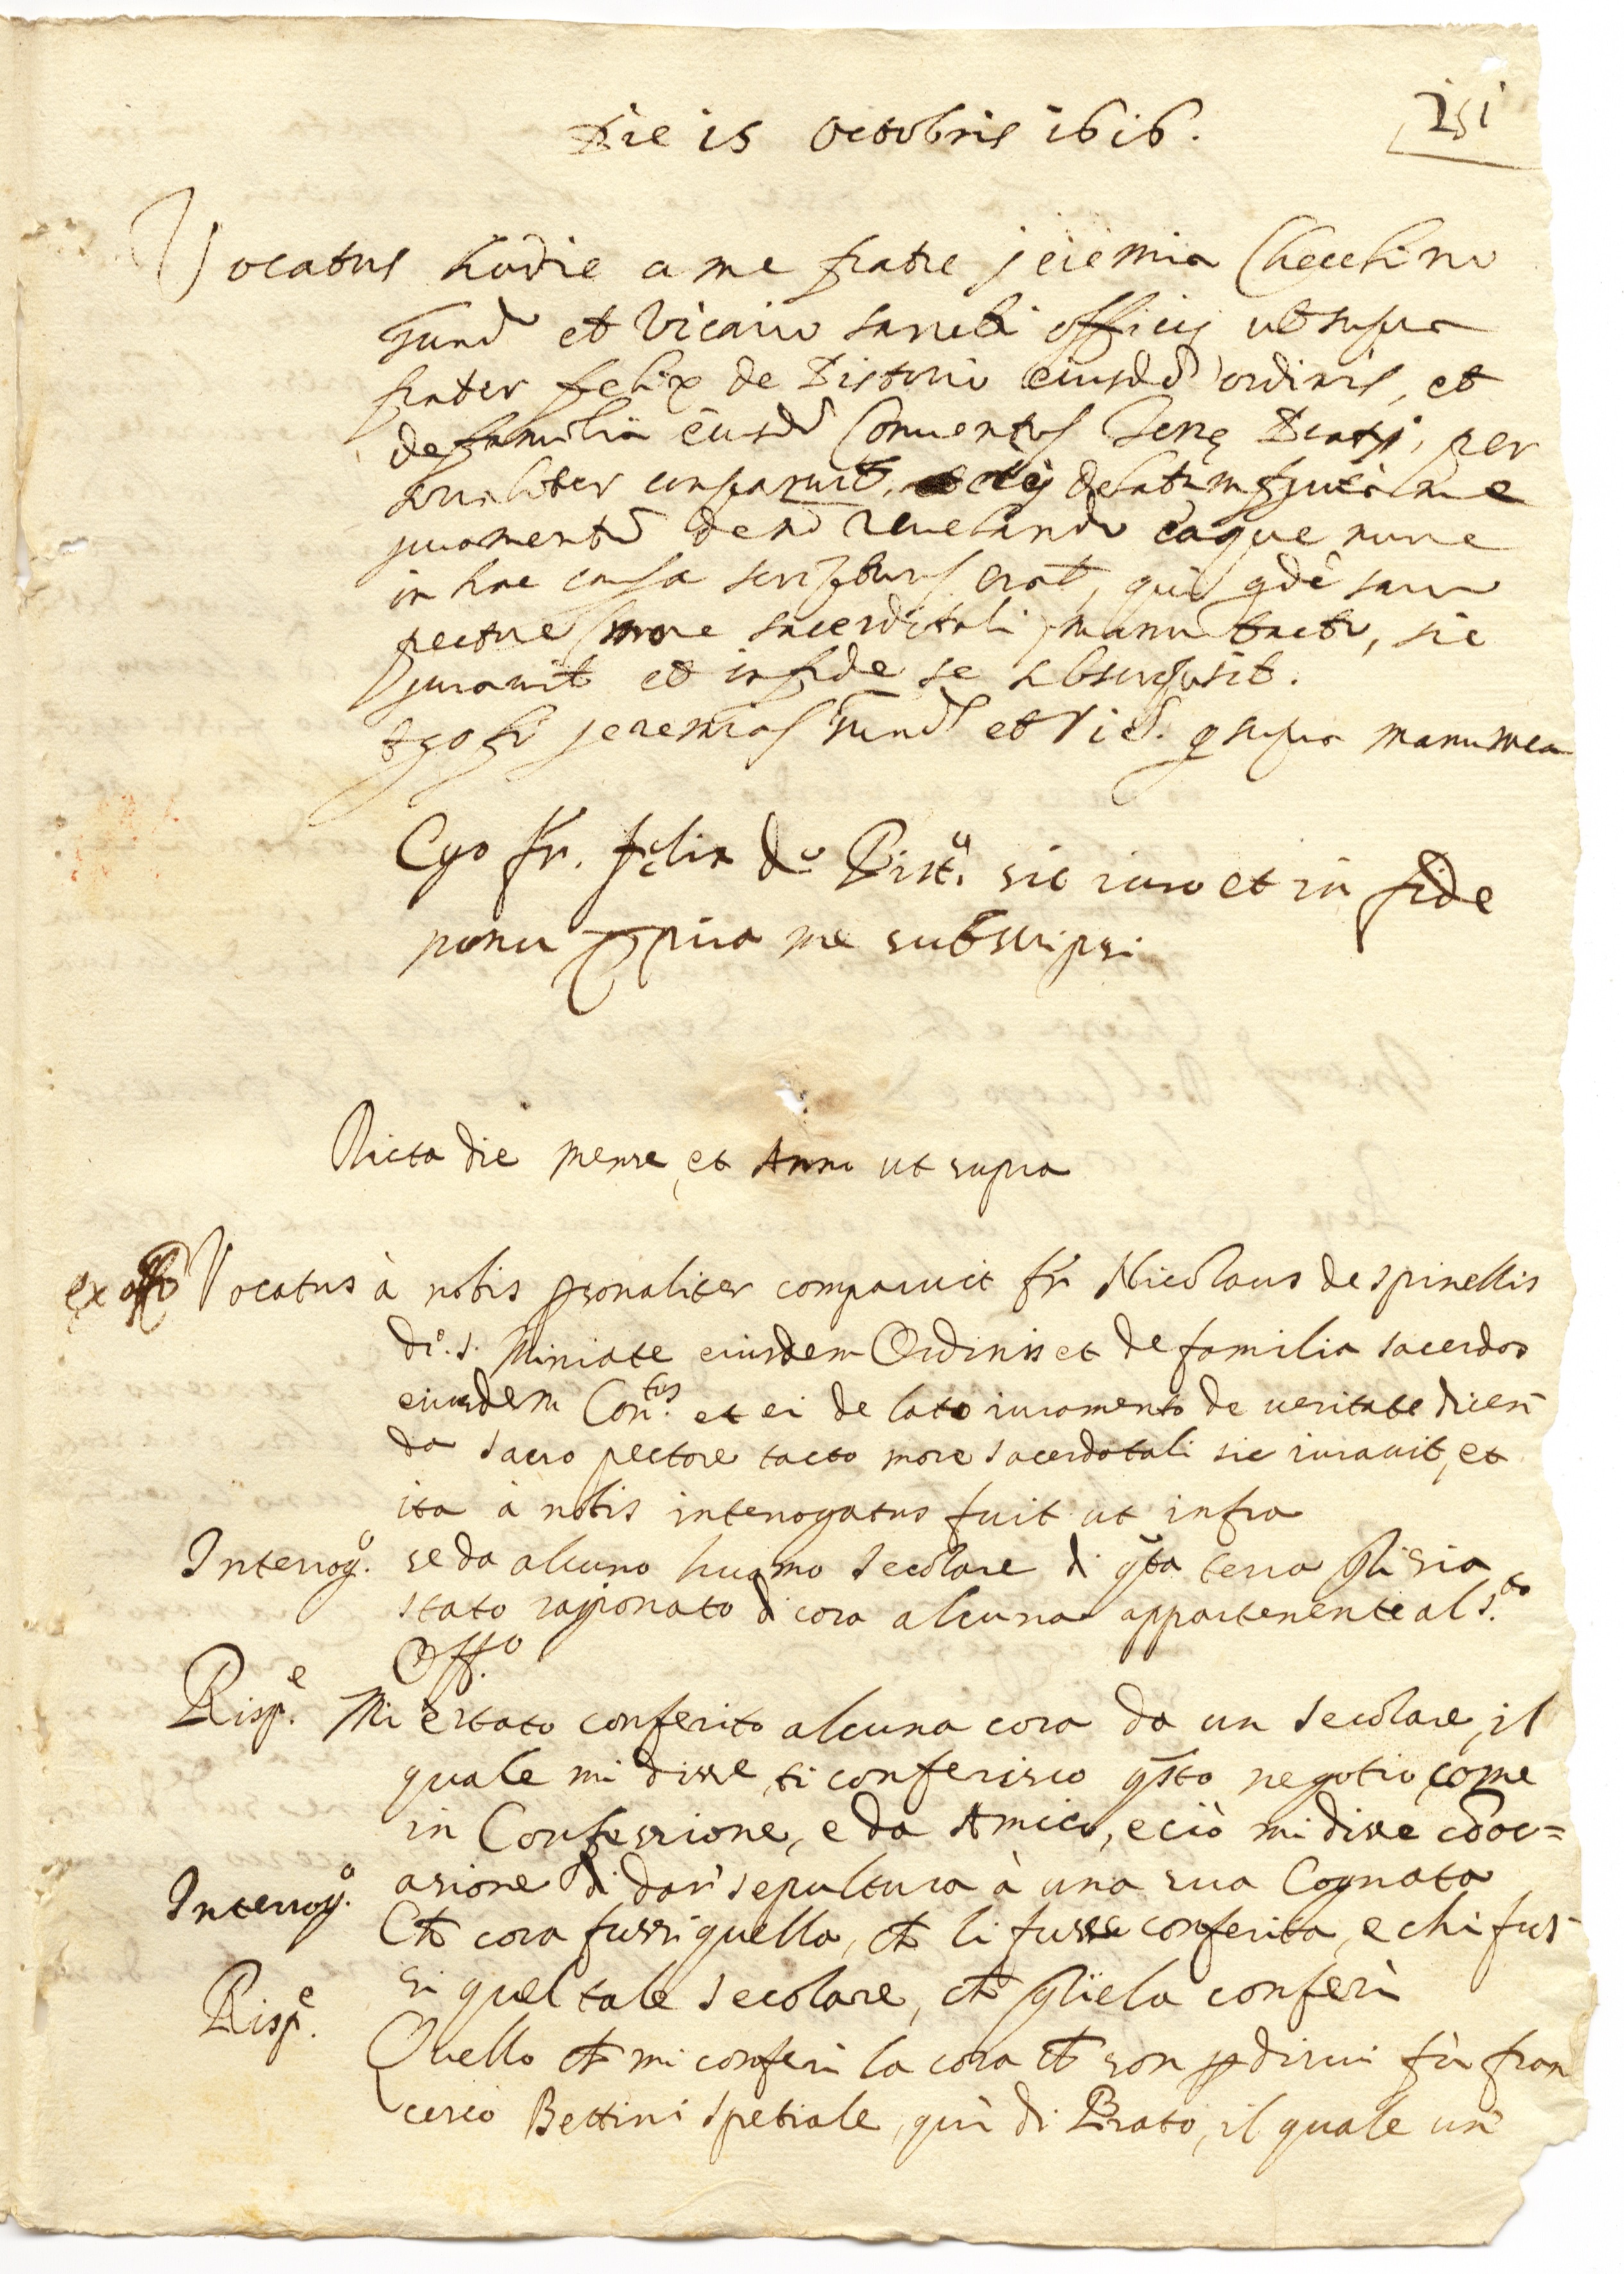 Die 15 octobris 1616.
151
Vocatus hodie a me fratre jeremia Checchino
et Vicario sancti officij ut supra
frater felix de Pistorio eiusdē ordinis, et
de familia eiusdē Conuentus terrę Prati, per
sonaliter comparuit, delatum fuit à me
juramentū de nō reuelando eaque nunc
in hac causa scripturus erat, qui qdē sacro
pectore more sacerdotali manu tacto, sic
jurauit et in fide se subscripsit.
Ego fr jeremias et Vic. q supra manu mea
Ego fr. felix de Pist.a sic iuro et in fide
manu ppria me subscripsi
Dicta die mense, et Anno ut supra
ex offo Vocatus à nobis psonaliter comparuit fr Nicolaus de spinellis
di. s. Miniate eiusdem Ordinis et de familia sacerdos
eiusdem Con.tus et ei delato iuramento de ueritate dicen
da sacro pectore tacto more sacerdotali sic iurauit, et
ita à nobis interrogatus fuit ut infra
Interrog.o se da alcuno huomo secolare di qsta terra gli sia
stato ragionato di cosa alcuna appartenente al s.to
Off.o
Risp.e Mi è stato conferito alcuna cosa da un secolare, il
quale mi disse, ti conferisco qsto negotio come
in Confessione, e da Amico, e ciò mi disse cō oc=
asione di dar sepultura à una sua Cognata
Interrog.o Che cosa fussi quella, che li fusse conferita, e chi fus
si quel tale secolare, che gliela conferì
Risp.e Quello che mi conferì la cosa che son p dirui fù fran
cesco Bettini spetiale, quì di Prato, il quale un